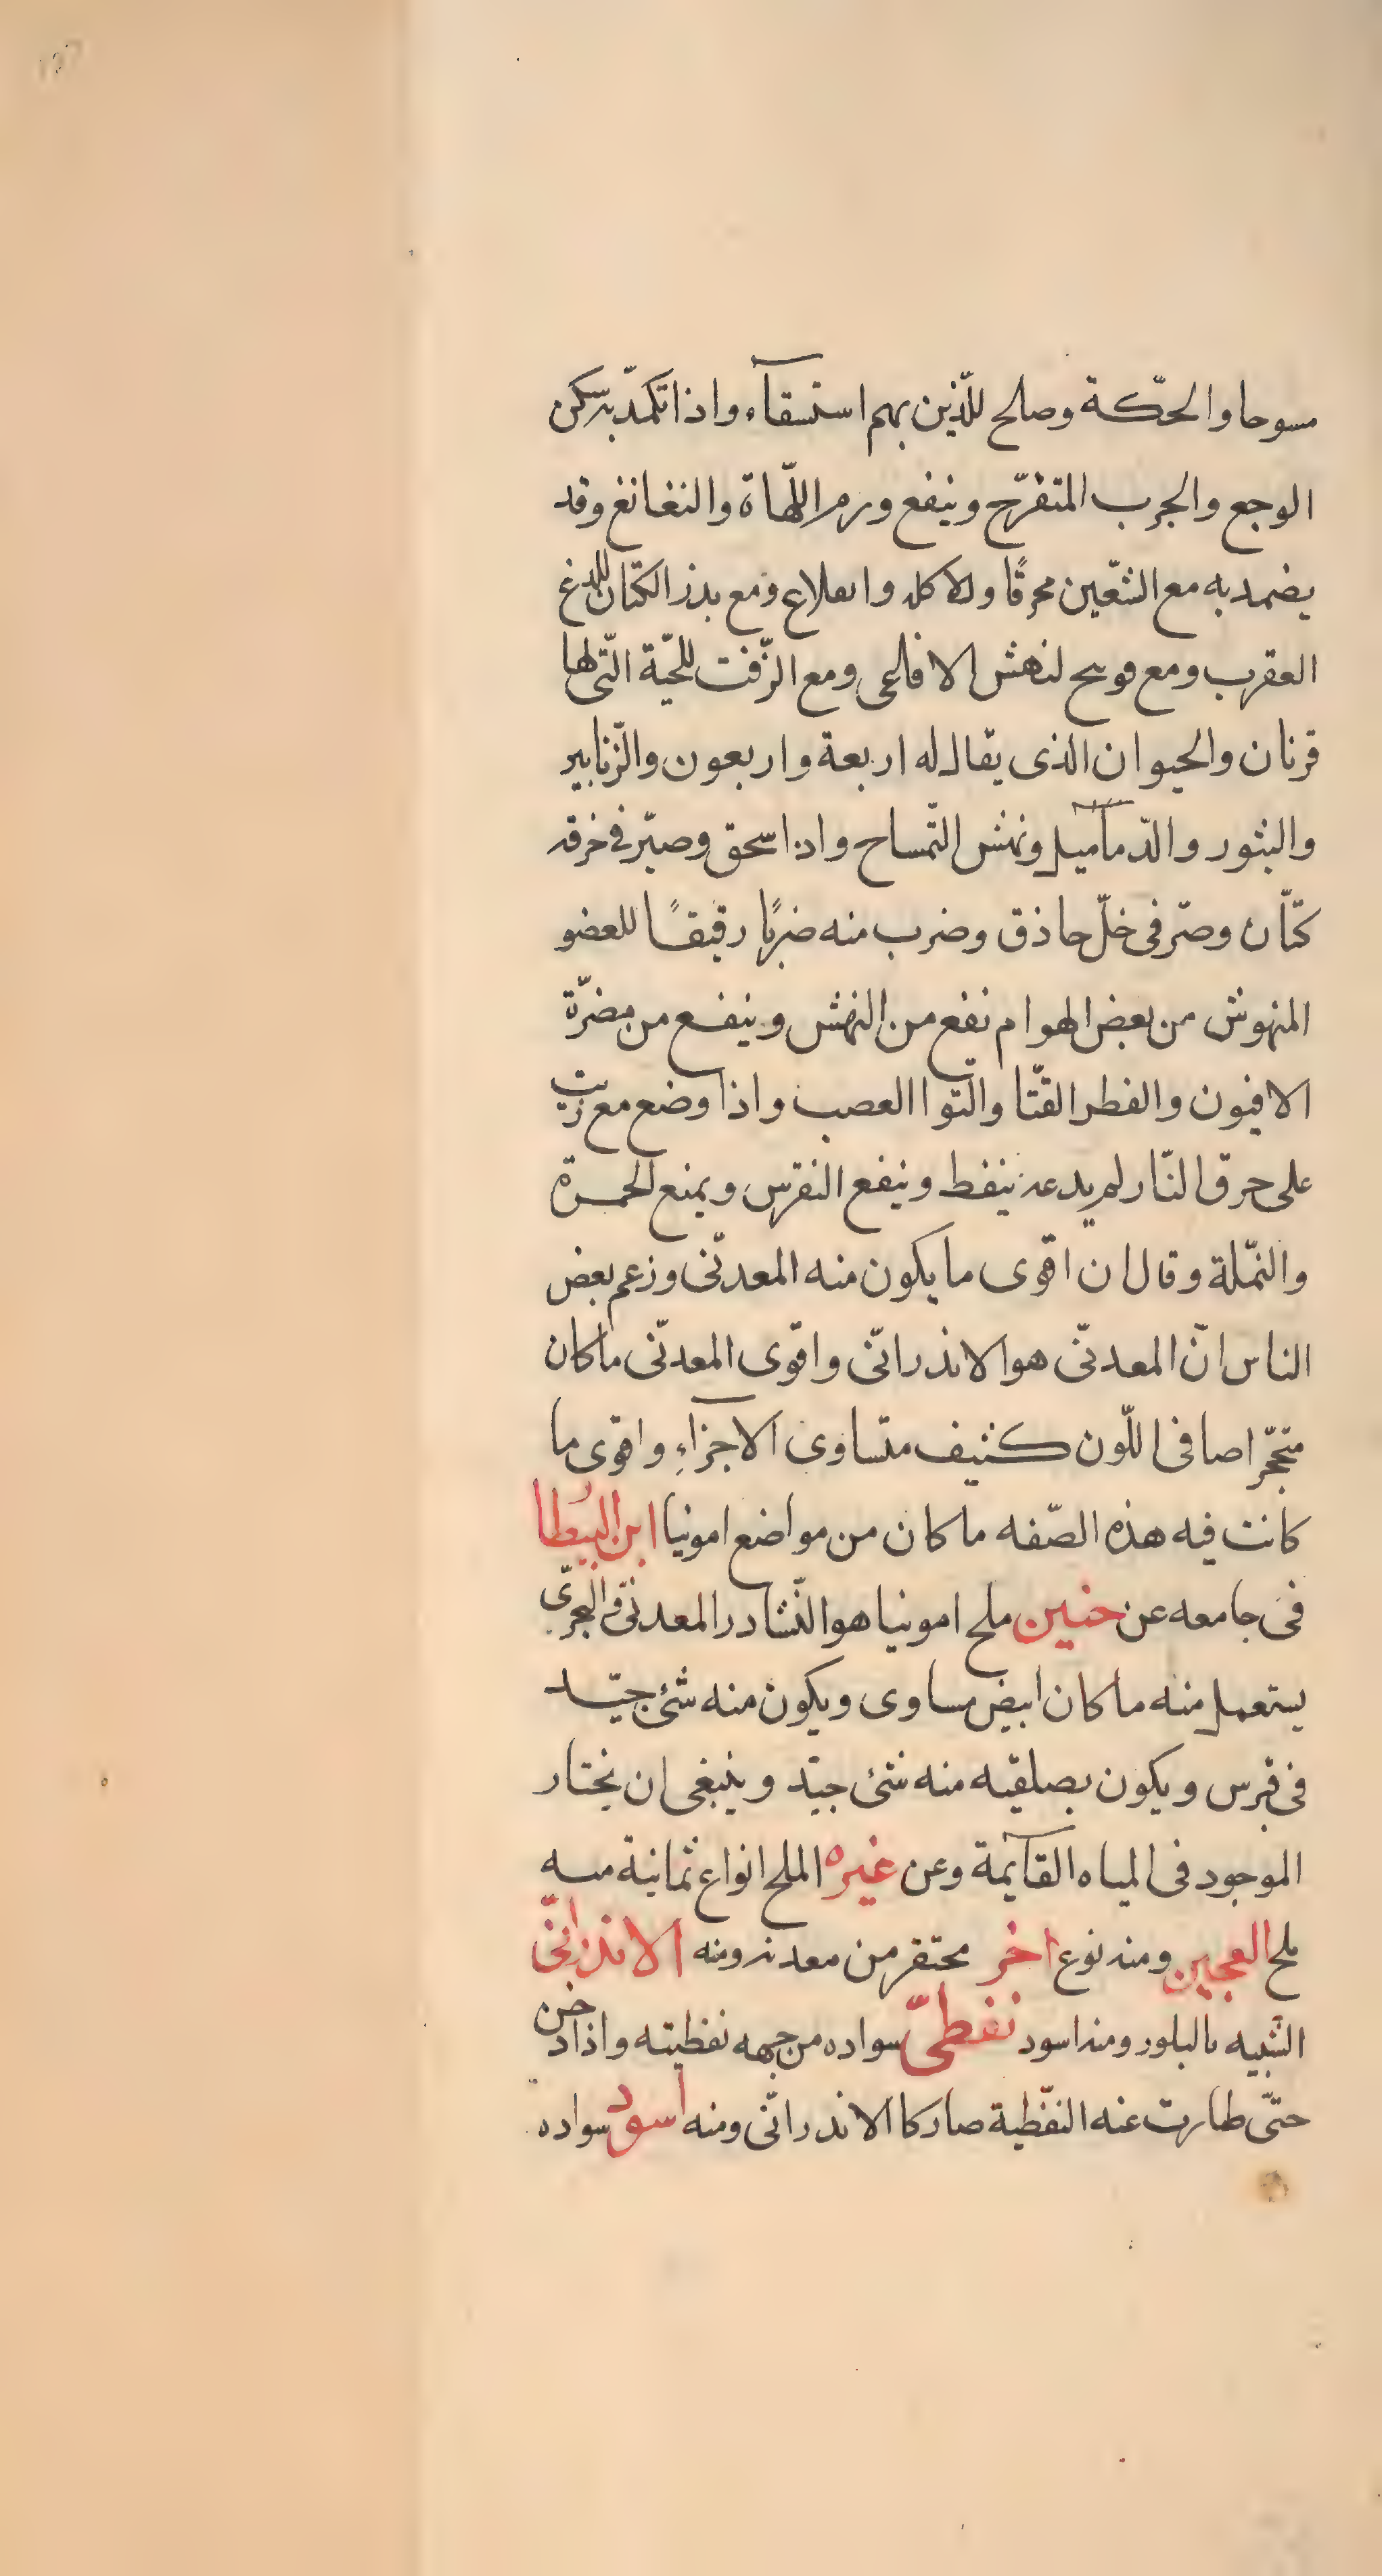 مسوحا والحكّة وصالح للّذين بهم استسقآء واذا تكمّد به سكن
الوجع والجرب المتقرّح وينفع ورم اللّهاة والنغانغ وقد
يضمد به مع الشّعين محرقًا والاكله والقلاع ومع بذر الكتّان للدغ
العقرب ومع فوىىح لنهش الافاعى ومع الزّفت للحيّة الّتى لها
قرنان والحيوان الذى يقال له اربعة واربعون والزّنابير
والبثور والدّمآميل ونهش التّمساح واذا سحق وصيّر فى خرقه
كتّان وصرّ فى خلّ حاذق وضرب منه ضربًا رقيقًا للعضو
المنهوش من بعض الهوام نفع من النهش وينفع من مضرّة
الافيون والفطر القتّا والتّوا العصب واذا وضع مع زيت
على حرق النّار لم يدعه ينفط وينفع النقرس ويمنع الحمرة
والنمّلة وقال ان اقوى ما يكون منه المعدنّى وزعم بعض
الناس انّ المعدنّى هو الاندرانّى واقوى المعدنّى ما كان
متحجّرا صافى اللّون كثيف متساوى الآجزاءِ واقوى ما
كانت فيه هذه الصّفه ما كان من مواضع امونيا ابن البيُطا
فى جامعه عن حنين ملح امونيا هو النّشادر المعدنّى والبحرّى
يستعمل منه ما كان ابيض مساوى ويكون منه شئ جيّد
فى قبرس ويكون بصلقيّه منه شئ جيّد وينبغى ان يختار
الموجود فى المياه القآيمة وعن غيره الملح انواع ثمانية منه
ملح العجين ومنه نوع اخر محتفر من معدنه ومنه الاندرانىّ
الشّبيه بالبلور ومنه اسود نفطىّ سواده من جهه نفطيته واذا دخن
حتّى طارت عنه النفّطية صار كا الاندرانّى ومنه اسود سواده